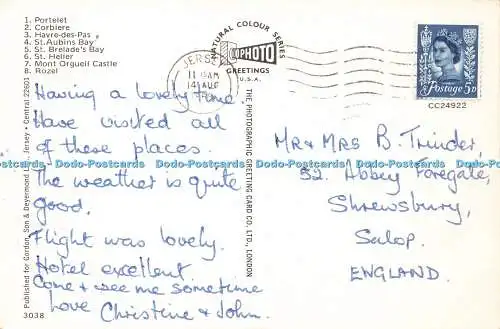 1. Portelet
2. Corbiere
3. Havre-des-Pas
4. St.Aubins Bay
5. St. Brelade's Bay
6. St. Helier
7. Mont Orgueil Castle
8. Rozel
NATURAL COLOUR SERIES
PHOTO
GREETINGS
U.S.A.
JERSEY
11 AM
14 AUG
Postage 3D
CC24922
Having a lovely time.
Have visited all
of these places.
The weather is quite
good.
Flight was lovely.
Hotel excellent.
Come & see me sometime
Love Christine & John.
Mr & Mrs B. Trinder,
52. Abbey Foregate,
Shrewsbury,
Salop.
ENGLAND.
THE PHOTOGRAPHIC GREETING CARD CO. LTD., LONDON
Published for Gordon, Son &
Jersey • Central 22601
3038
Dodo-Postcards Dodo-Postcards Dodo-Postcards Dodo-Postcards Dodo-Postcards